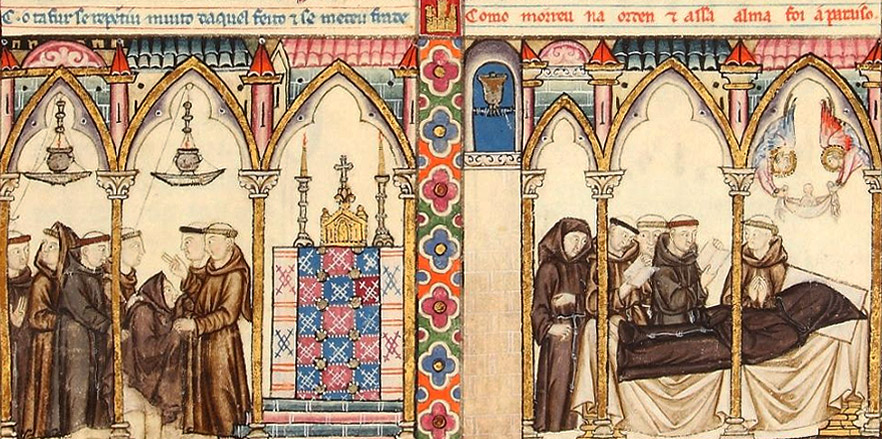 C. o tafur se repentiu muito daquel feito ⁊ se meteu frade
Como morreu na orden ⁊ assa alma foi a parayso.